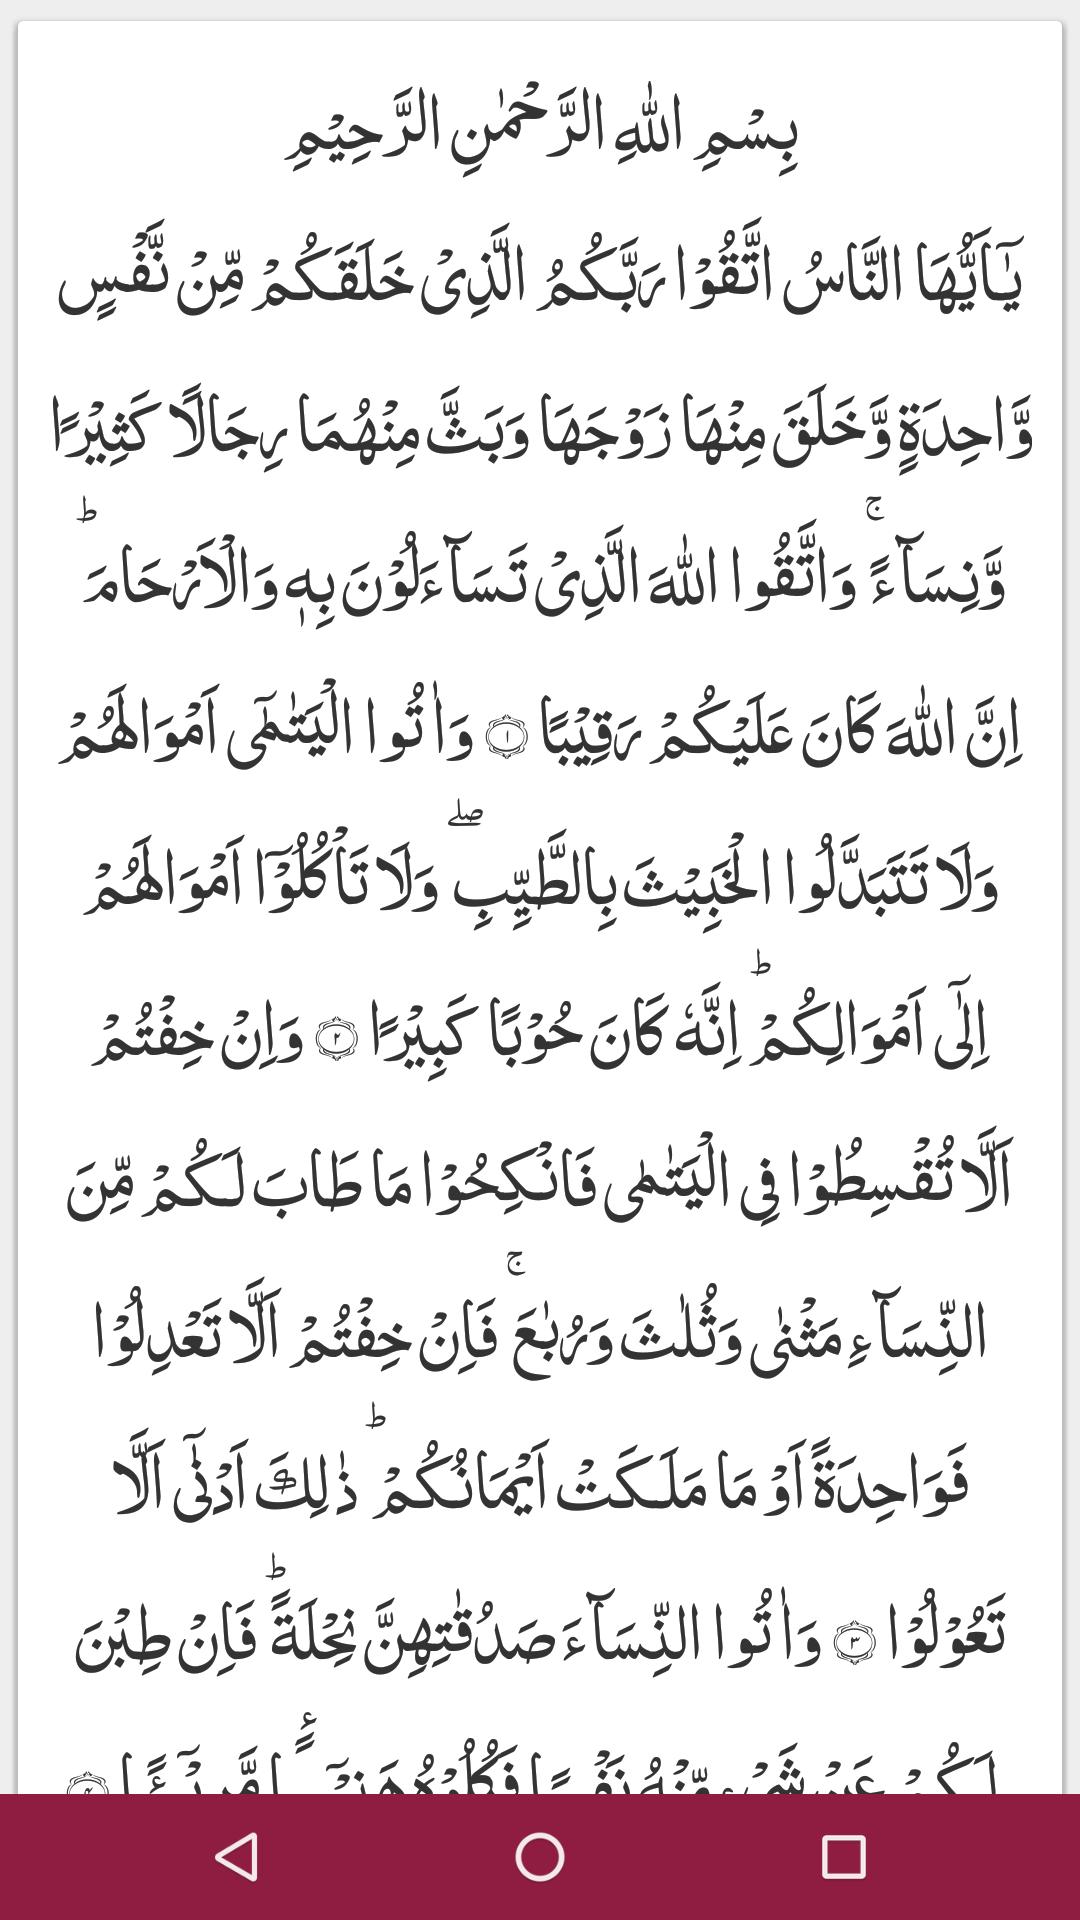 بِسْمِ اللّٰهِ الرَّحْمٰنِ الرَّحِيْمِ
يٰۤاَيُّهَا النَّاسُ اتَّقُوْا رَبَّكُمُ الَّذِىْ خَلَقَكُمْ مِّنْ نَّفْسٍ
وَّاحِدَةٍ وَّخَلَقَ مِنْهَا زَوْجَهَا وَبَثَّ مِنْهُمَا رِجَالًا كَثِيْرًا
وَّنِسَآءً ۚ وَاتَّقُوا اللّٰهَ الَّذِىْ تَسَآءَلُوْنَ بِهٖ وَالْاَرْحَامَ ؕ
اِنَّ اللّٰهَ كَانَ عَلَيْكُمْ رَقِيْبًا ‏﴿۱﴾ وَاٰ تُوا الْيَتٰمٰٓى اَمْوَالَهُمْ
وَلَا تَتَبَدَّلُوا الْخَبِيْثَ بِالطَّيِّبِ ۖ وَلَا تَاْكُلُوْۤا اَمْوَالَهُمْ
اِلٰٓى اَمْوَالِكُمْ ؕ اِنَّهٗ كَانَ حُوْبًا كَبِيْرًا ‏﴿۲﴾ وَاِنْ خِفْتُمْ
اَلَّا تُقْسِطُوْا فِى الْيَتٰمٰى فَانْكِحُوْا مَا طَابَ لَـكُمْ مِّنَ
النِّسَآءِ مَثْنٰى وَثُلٰثَ وَرُبٰعَ ۚ فَاِنْ خِفْتُمْ اَلَّا تَعْدِلُوْا
فَوَاحِدَةً اَوْ مَا مَلَـكَتْ اَيْمَانُكُمْ ؕ ذٰ لِكَ اَدْنٰٓى اَلَّا
تَعُوْلُوْا ‏﴿۳﴾ وَاٰ تُوا النِّسَآءَ صَدُقٰتِهِنَّ نِحْلَةً ؕ فَاِنْ طِبْنَ
لَـكُمْ عَنْ شَىْءٍ مِّنْهُ نَفْسًا فَكُلُوْهُ هَنِيْٓـــًٔا مَّرِیْٓـــًٔا ‏﴿۴﴾